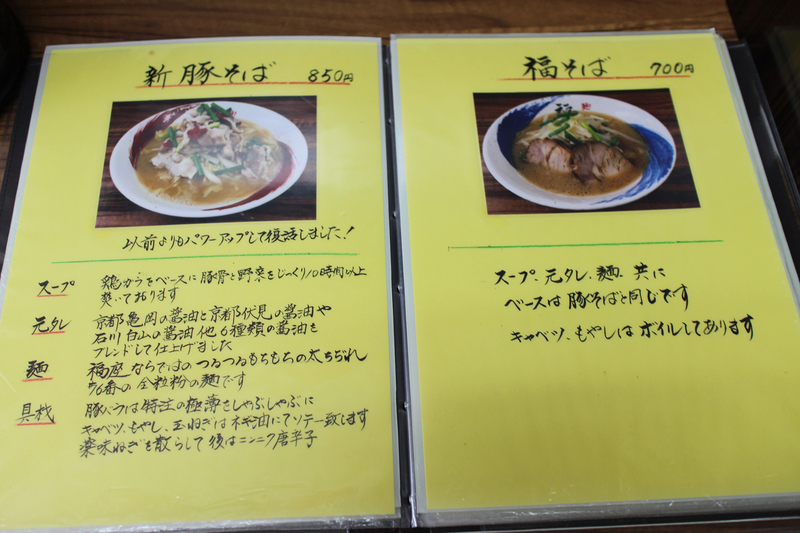 新豚そば 850円
以前よりもパワーアップして復活しました!
スープ 鶏ガラをベースに豚骨と野菜をじっくり10時間以上
焚いております
元タレ 京都亀岡の醤油と京都伏見の醤油や
石川白山の醤油他6種類の醤油を
ブレンドして仕上げました
麺 福座ならではのつるつるもちもちの太ちぢれ
16番の全粒粉の麺です
具材 豚バラは特注の極薄をしゃぶしゃぶに
キャベツ、もやし、玉ねぎはネギ油にてソテー致します
薬味ねぎを散らして後はニンニク唐辛子
福そば 700円
スープ、元タレ、麺、共に
ベースは豚そばと同じです
キャベツ、もやしはボイルしてあります